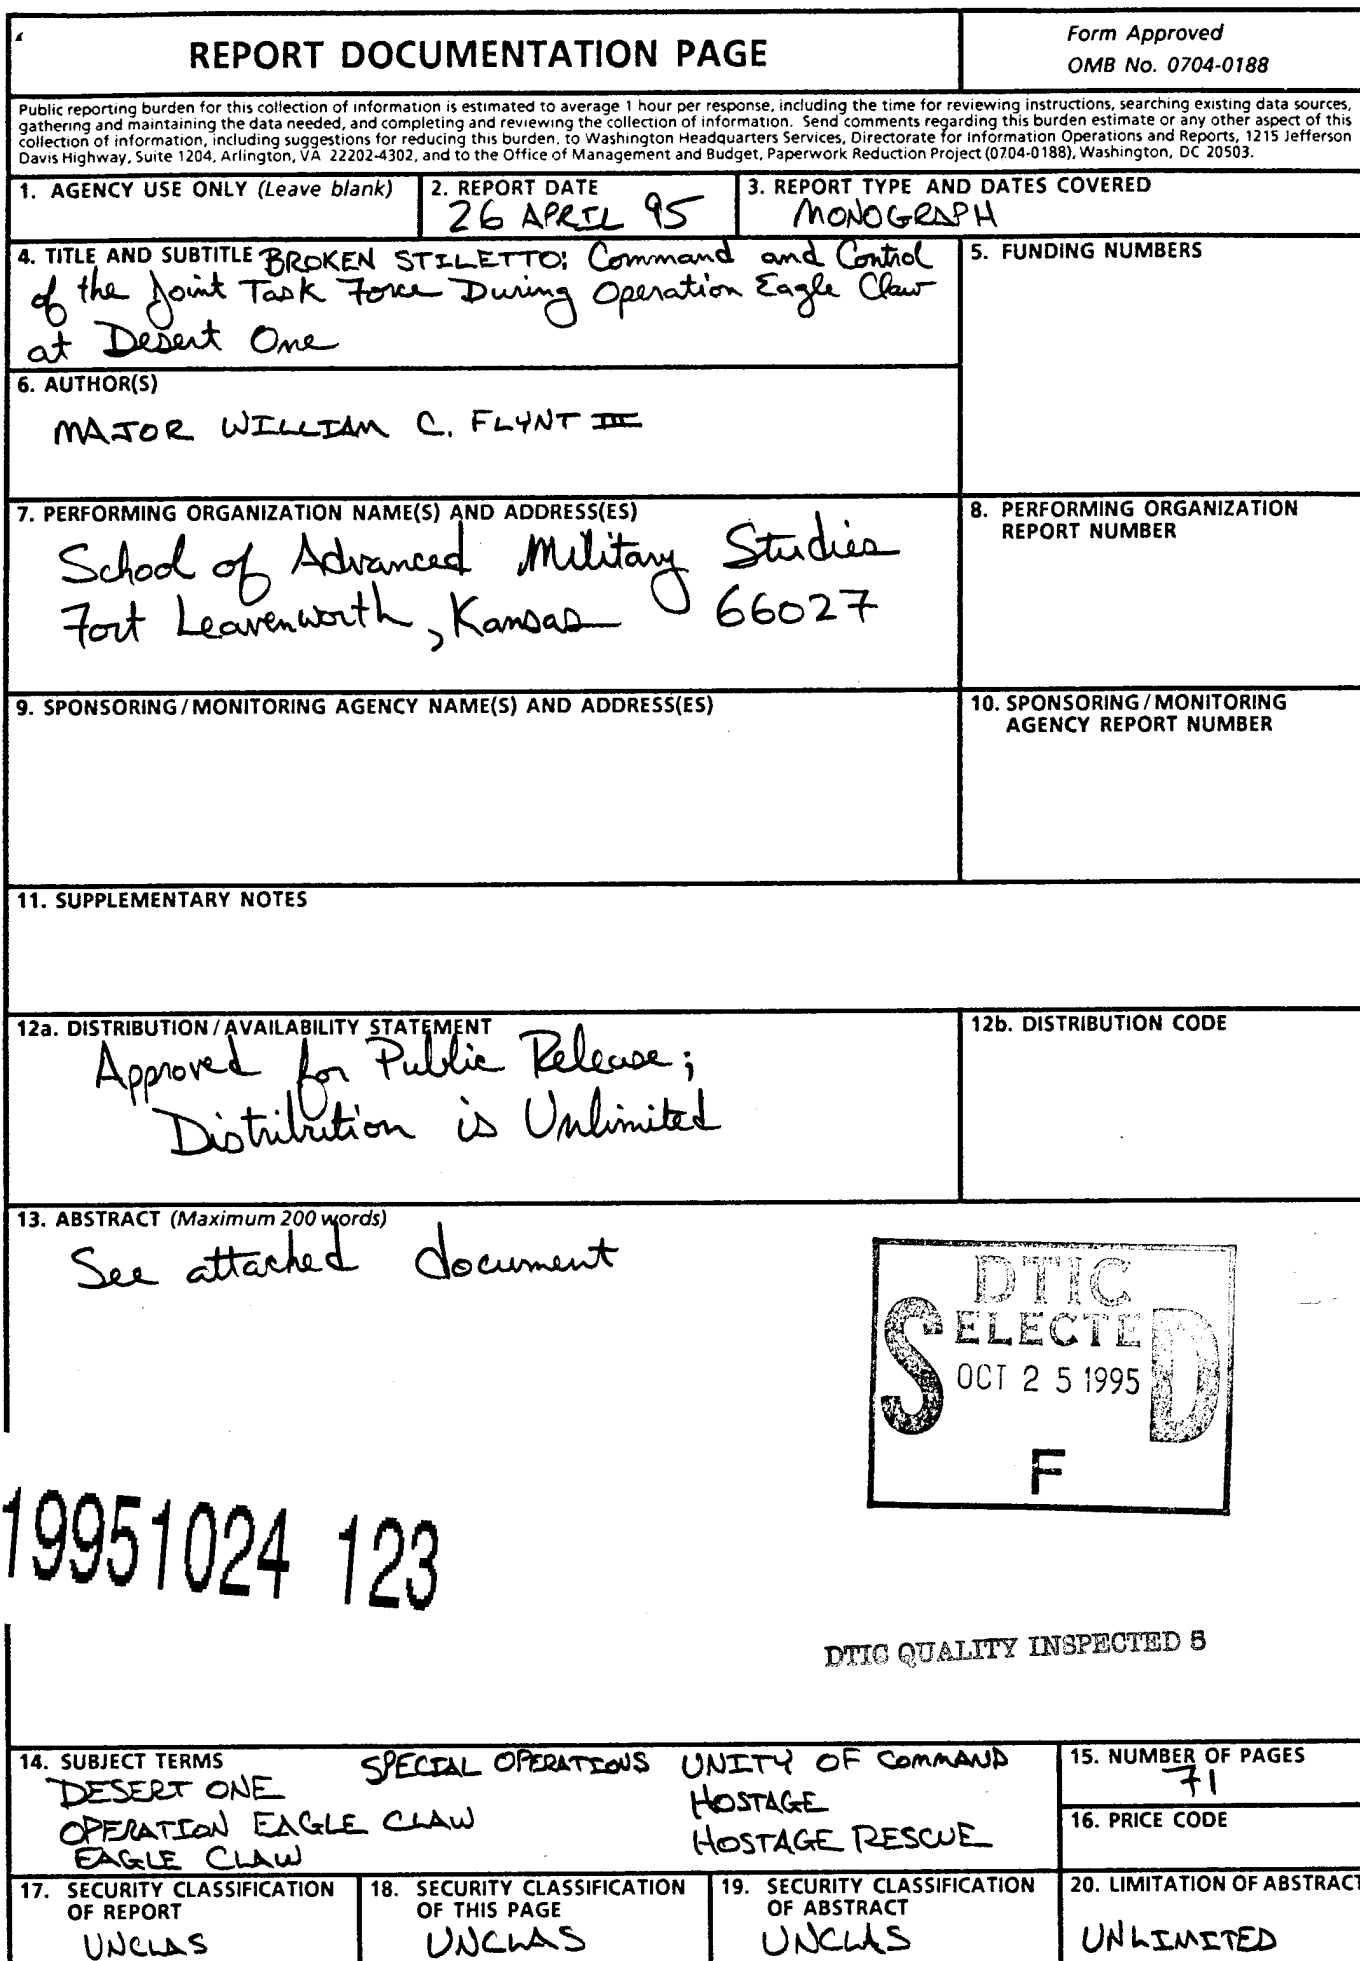 REPORT DOCUMENTATION PAGE
Form Approved
OMB No. 0704-0188
Public reporting burden for this collection of information is estimated to average 1 hour per response, including the time for reviewing instructions, searching existing data sources,
gathering and maintaining the data needed, and completing and reviewing the collection of information. Send comments regarding this burden estimate or any other aspect of this
collection of information, including suggestions for reducing this burden, to Washington Headquarters Services, Directorate for Information Operations and Reports, 1215 Jefferson
Davis Highway, Suite 1204, Arlington, VA 22202-4302, and to the Office of Management and Budget, Paperwork Reduction Project (0704-0188), Washington, DC 20503.
1. AGENCY USE ONLY (Leave blank)
2. REPORT DATE
26 APRIL 95
3. REPORT TYPE AND DATES COVERED
MONOGRAPH
4. TITLE AND SUBTITLE BROKEN STILETTO: Command and Control
of the Joint Task Force During Operation Eagle Claw
at Desert One
5. FUNDING NUMBERS
6. AUTHOR(S)
MAJOR WILLIAM C. FLYNT III
7. PERFORMING ORGANIZATION NAME(S) AND ADDRESS(ES)
School of Advanced Military Studies
Fort Leavenworth, Kansas 66027
8. PERFORMING ORGANIZATION
REPORT NUMBER
9. SPONSORING/MONITORING AGENCY NAME(S) AND ADDRESS(ES)
10. SPONSORING/MONITORING
AGENCY REPORT NUMBER
11. SUPPLEMENTARY NOTES
12a. DISTRIBUTION/AVAILABILITY STATEMENT
Approved for Public Release;
Distribution is Unlimited
12b. DISTRIBUTION CODE
13. ABSTRACT (Maximum 200 words)
See attached document
DTIC
SELECTED
OCT 25 1995
F
19951024 123
DTIC QUALITY INSPECTED 5
14. SUBJECT TERMS
DESERT ONE
OPERATION EAGLE CLAW
EAGLE CLAW
SPECIAL OPERATIONS
UNITY OF COMMAND
HOSTAGE
HOSTAGE RESCUE
15. NUMBER OF PAGES
71
16. PRICE CODE
17. SECURITY CLASSIFICATION
OF REPORT
UNCLAS
18. SECURITY CLASSIFICATION
OF THIS PAGE
UNCLAS
19. SECURITY CLASSIFICATION
OF ABSTRACT
UNCLAS
20. LIMITATION OF ABSTRACT
UNLIMITED